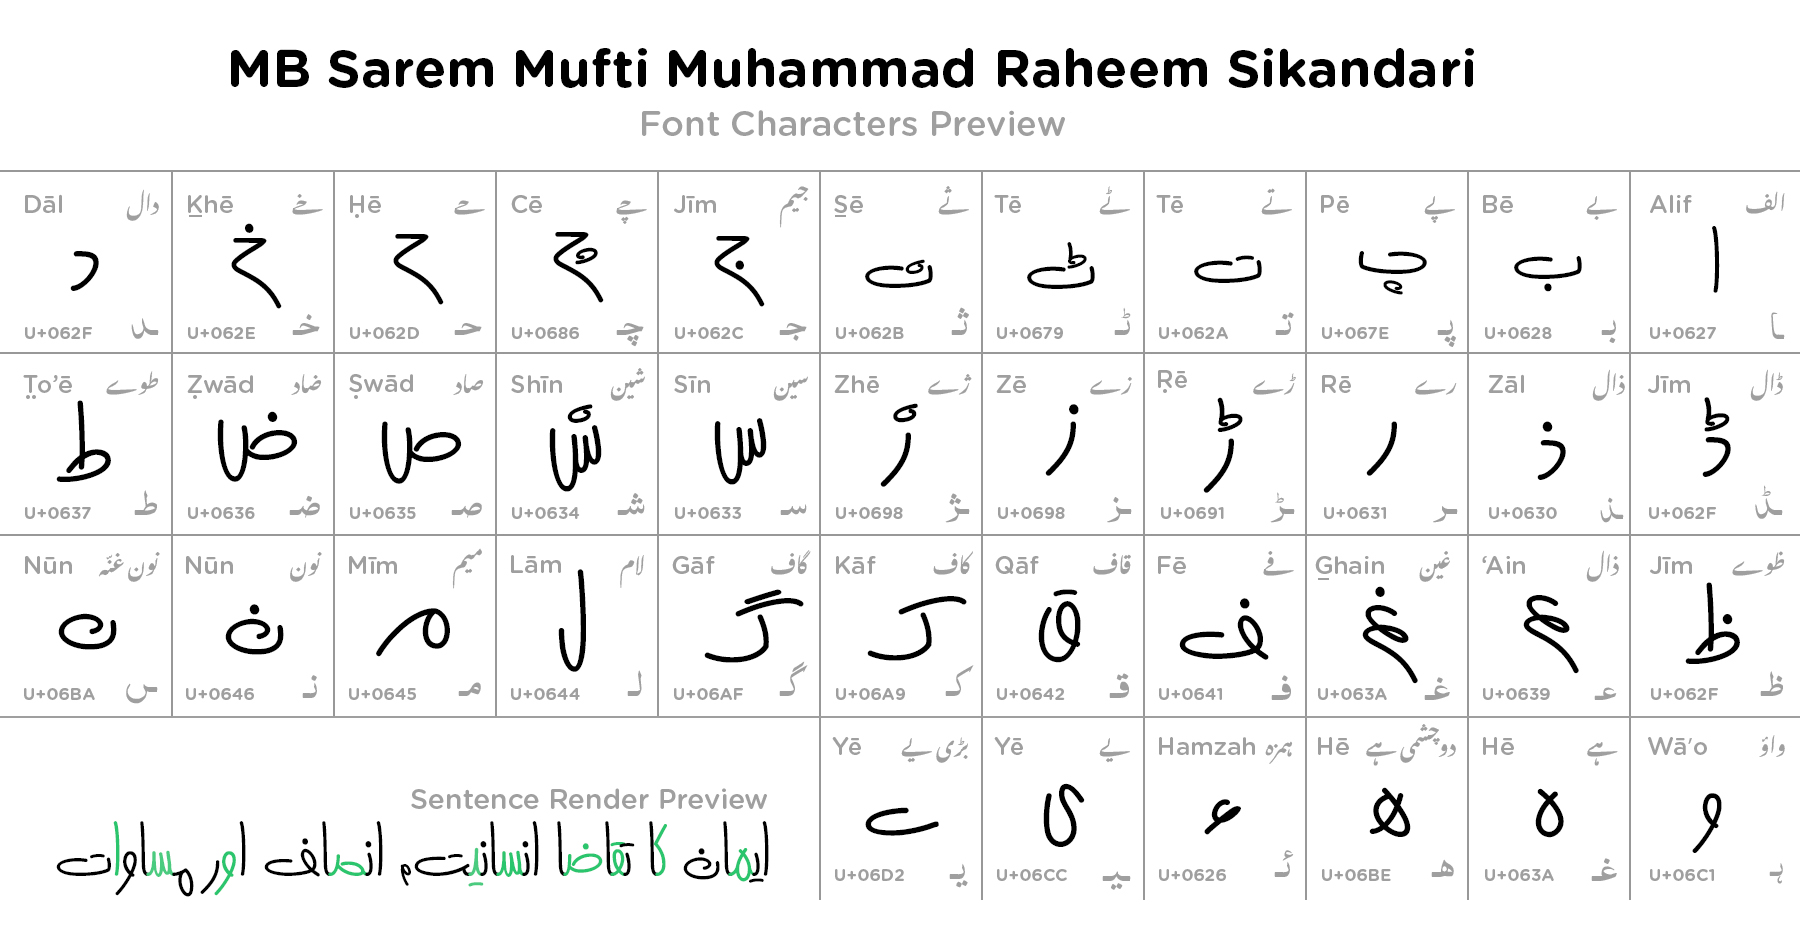 MB Sarem Mufti Muhammad Raheem Sikandari
Font Characters Preview
Alif الف
ا
U+0627 ـا
Bē بے
ب
U+0628 بـ
Pē پے
پ
U+067E پـ
Tē تے
ت
U+062A تـ
Tē ٹے
ٹ
U+0679 ٹـ
S̱ē ثے
ث
U+062B ثـ
Jīm جیم
ج
U+062C جـ
Cē چے
چ
U+0686 چـ
Ḥē حے
ح
U+062D حـ
Ḵhē خے
خ
U+062E خـ
Dāl دال
د
U+062F ـد
Jīm ڈال
ڈ
U+062F ـڈ
Zāl ذال
ذ
U+0630 ـذ
Rē رے
ر
U+0631 ـر
Ṛē ڑے
ڑ
U+0691 ـڑ
Zē زے
ز
U+0698 ـز
Zhē ژے
ژ
U+0698 ـژ
Sīn سین
س
U+0633 سـ
Shīn شین
ش
U+0634 شـ
Ṣwād صاد
ص
U+0635 صـ
Ẓwād ضاد
ض
U+0636 ضـ
T̤o’ē طوے
ط
U+0637 طـ
Jīm ظوے
ظ
U+062F ظـ
‘Ain ذال
ع
U+0639 عـ
G̱hain غین
غ
U+063A غـ
Fē فے
ف
U+0641 فـ
Qāf قاف
ق
U+0642 قـ
Kāf کاف
ک
U+06A9 کـ
Gāf گاف
گ
U+06AF گـ
Lām لام
ل
U+0644 لـ
Mīm میم
م
U+0645 مـ
Nūn نون
ن
U+0646 نـ
Nūn نون غنّہ
ں
U+06BA ـں
Wā'o واؤ
و
U+06C1 ہـ
Hē ہے
ہ
U+063A غـ
Hē دو چشمی ہے
ھ
U+06BE ھـ
Hamzah ہمزہ
ء
U+0626 ئـ
Yē یے
ی
U+06CC ـیـ
Yē بڑی یے
ے
U+06D2 یـ
Sentence Render Preview
ایمان کا تقاضا انسانیت، انصاف اور مساوات